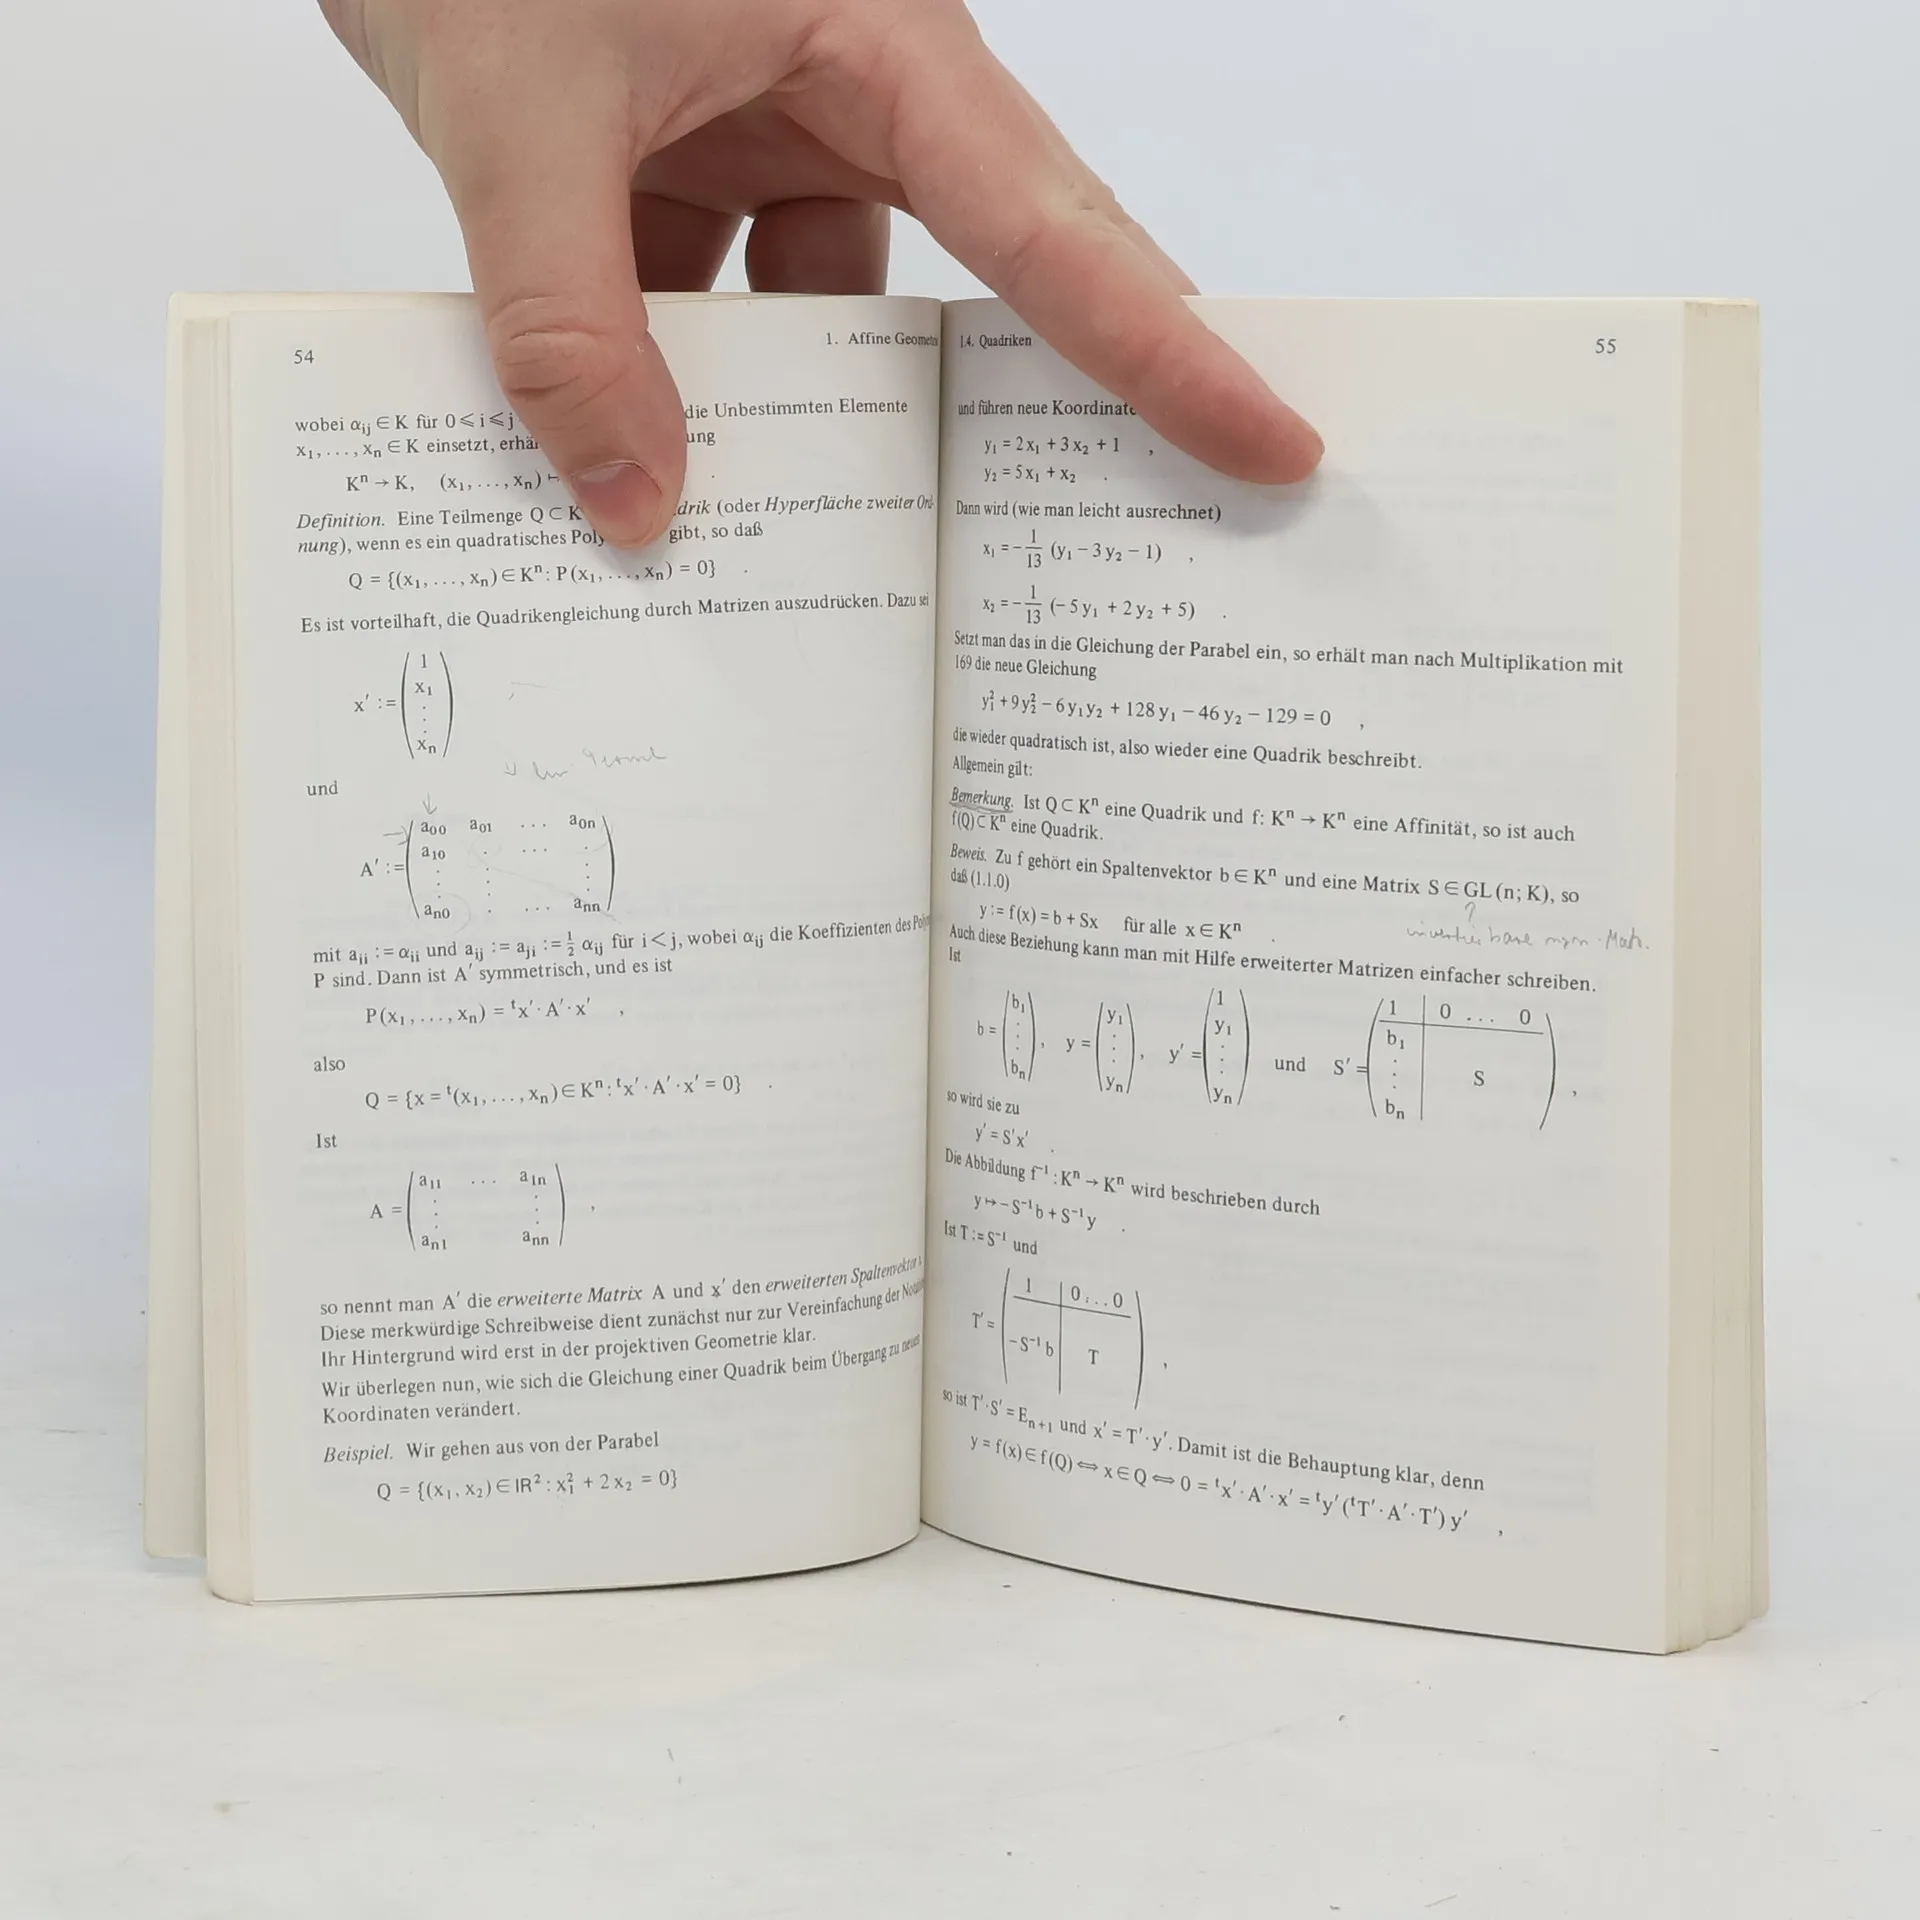 54
1. Affine Geomet
wobei αᵢⱼ ∈ K für 0 ⩽ i ⩽ j die Unbestimmten Elemente
x₁, . . . , xₙ ∈ K einsetzt, erhä ung
Kⁿ → K, (x₁, . . . , xₙ) ↦
Definition. Eine Teilmenge Q ⊂ K drik (oder Hyperfläche zweiter Ord-
nung), wenn es ein quadratisches Poly gibt, so daß
Q = {(x₁, . . . , xₙ) ∈ Kⁿ : P(x₁, . . . , xₙ) = 0} .
Es ist vorteilhaft, die Quadrikengleichung durch Matrizen auszudrücken. Dazu sei
1
x₁
x′ := .
.
xₙ
und
a₀₀ a₀₁ . . . a₀ₙ
a₁₀ . . . . .
A′ := . . .
. . .
aₙ₀ . . . . aₙₙ
mit aᵢᵢ := αᵢᵢ und aᵢⱼ := aⱼᵢ := ½ αᵢⱼ für i < j, wobei αᵢⱼ die Koeffizienten des Poly
P sind. Dann ist A′ symmetrisch, und es ist
P(x₁, . . . , xₙ) = ᵗx′ · A′ · x′ ,
also
Q = {x = ᵗ(x₁, . . . , xₙ) ∈ Kⁿ : ᵗx′ · A′ · x′ = 0} .
Ist
a₁₁ . . . a₁ₙ
A = . . ,
aₙ₁ aₙₙ
so nennt man A′ die erweiterte Matrix A und x′ den erweiterten Spaltenvektor
Diese merkwürdige Schreibweise dient zunächst nur zur Vereinfachung der
Ihr Hintergrund wird erst in der projektiven Geometrie klar.
Wir überlegen nun, wie sich die Gleichung einer Quadrik beim Übergang zu neuen
Koordinaten verändert.
Beispiel. Wir gehen aus von der Parabel
Q = {(x₁, x₂) ∈ ℝ² : x₁² + 2x₂ = 0}
1.4. Quadriken
55
und führen neue Koordinate
y₁ = 2x₁ + 3x₂ + 1 ,
y₂ = 5x₁ + x₂ .
Dann wird (wie man leicht ausrechnet)
x₁ = − 1/13 (y₁ − 3y₂ − 1) ,
x₂ = − 1/13 (− 5y₁ + 2y₂ + 5) .
Setzt man das in die Gleichung der Parabel ein, so erhält man nach Multiplikation mit
169 die neue Gleichung
y₁² + 9y₂² − 6y₁y₂ + 128y₁ − 46y₂ − 129 = 0 ,
die wieder quadratisch ist, also wieder eine Quadrik beschreibt.
Allgemein gilt:
Bemerkung. Ist Q ⊂ Kⁿ eine Quadrik und f: Kⁿ → Kⁿ eine Affinität, so ist auch
f(Q) ⊂ Kⁿ eine Quadrik.
Beweis. Zu f gehört ein Spaltenvektor b ∈ Kⁿ und eine Matrix S ∈ GL(n; K), so
daß (1.1.0)
?
y := f(x) = b + Sx für alle x ∈ Kⁿ .
Auch diese Beziehung kann man mit Hilfe erweiterter Matrizen einfacher schreiben.
Ist
b₁ y₁ 1 1 0 . . . 0
y₁ b₁
b = . , y = . , y′ = . und S′ = . S ,
bₙ yₙ yₙ bₙ
so wird sie zu
y′ = S′x′ .
Die Abbildung f⁻¹ : Kⁿ → Kⁿ wird beschrieben durch
y ↦ − S⁻¹b + S⁻¹y .
Ist T := S⁻¹ und
1 0 . . . 0
T′ =
−S⁻¹b T ,
so ist T′ · S′ = Eₙ₊₁ und x′ = T′ · y′. Damit ist die Behauptung klar, denn
y = f(x) ∈ f(Q) ⟺ x ∈ Q ⟺ 0 = ᵗx′ · A′ · x′ = ᵗy′(ᵗT′ · A′ · T′)y′ ,